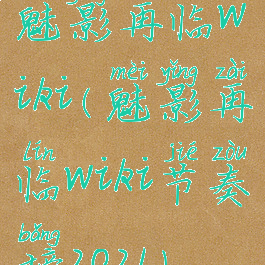 魅影再临w
iki(魅影再
mèi yǐng zài
临wiki节奏
lín jiē zòu
榜2024)
bǎng